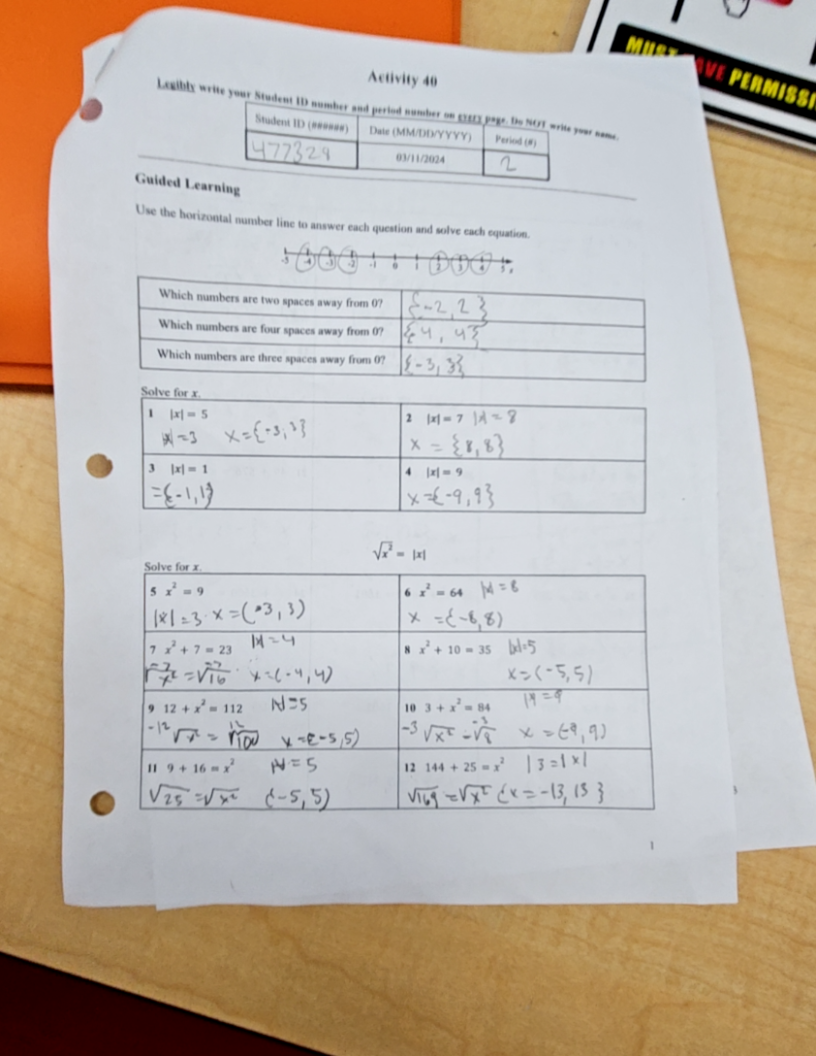 MUST HAVE PERMISSI
Activity 40
Legibly write your Student ID number and period number on every page. Do NOT write your name.
Student ID (######) Date (MM/DD/YYYY) Period (#)
477329 03/11/2024 2
Guided Learning
Use the horizontal number line to answer each question and solve each equation.
-5 -4 -3 -2 -1 0 1 2 3 4 5 x
Which numbers are two spaces away from 0? {-2, 2}
Which numbers are four spaces away from 0? {4, 4}
Which numbers are three spaces away from 0? {-3, 3}
Solve for x.
1 |x| = 5 2 |x| = 7 |x| = 8
|x| = 3 x = {-3, 3} x = {8, 8}
3 |x| = 1 4 |x| = 9
= {-1, 1} x = {-9, 9}
√x² = |x|
Solve for x.
5 x² = 9 6 x² = 64 |x| = 8
|x| = 3 x = (-3, 3) x = {-8, 8)
7 x² + 7 = 23 |x| = 4 8 x² + 10 = 35 |x|=5
-7 -7
√x² = √16 x = (-4, 4) x = (-5, 5)
9 12 + x² = 112 |x| = 5 10 3 + x² = 84 |x| = 9
-12 √x² = √100 x = {-5, 5) -3 √x² = √8 x = (-9, 9)
11 9 + 16 = x² |x| = 5 12 144 + 25 = x² 13 = |x|
√25 = √x² {-5, 5) √169 = √x² {x = -13, 13}
1